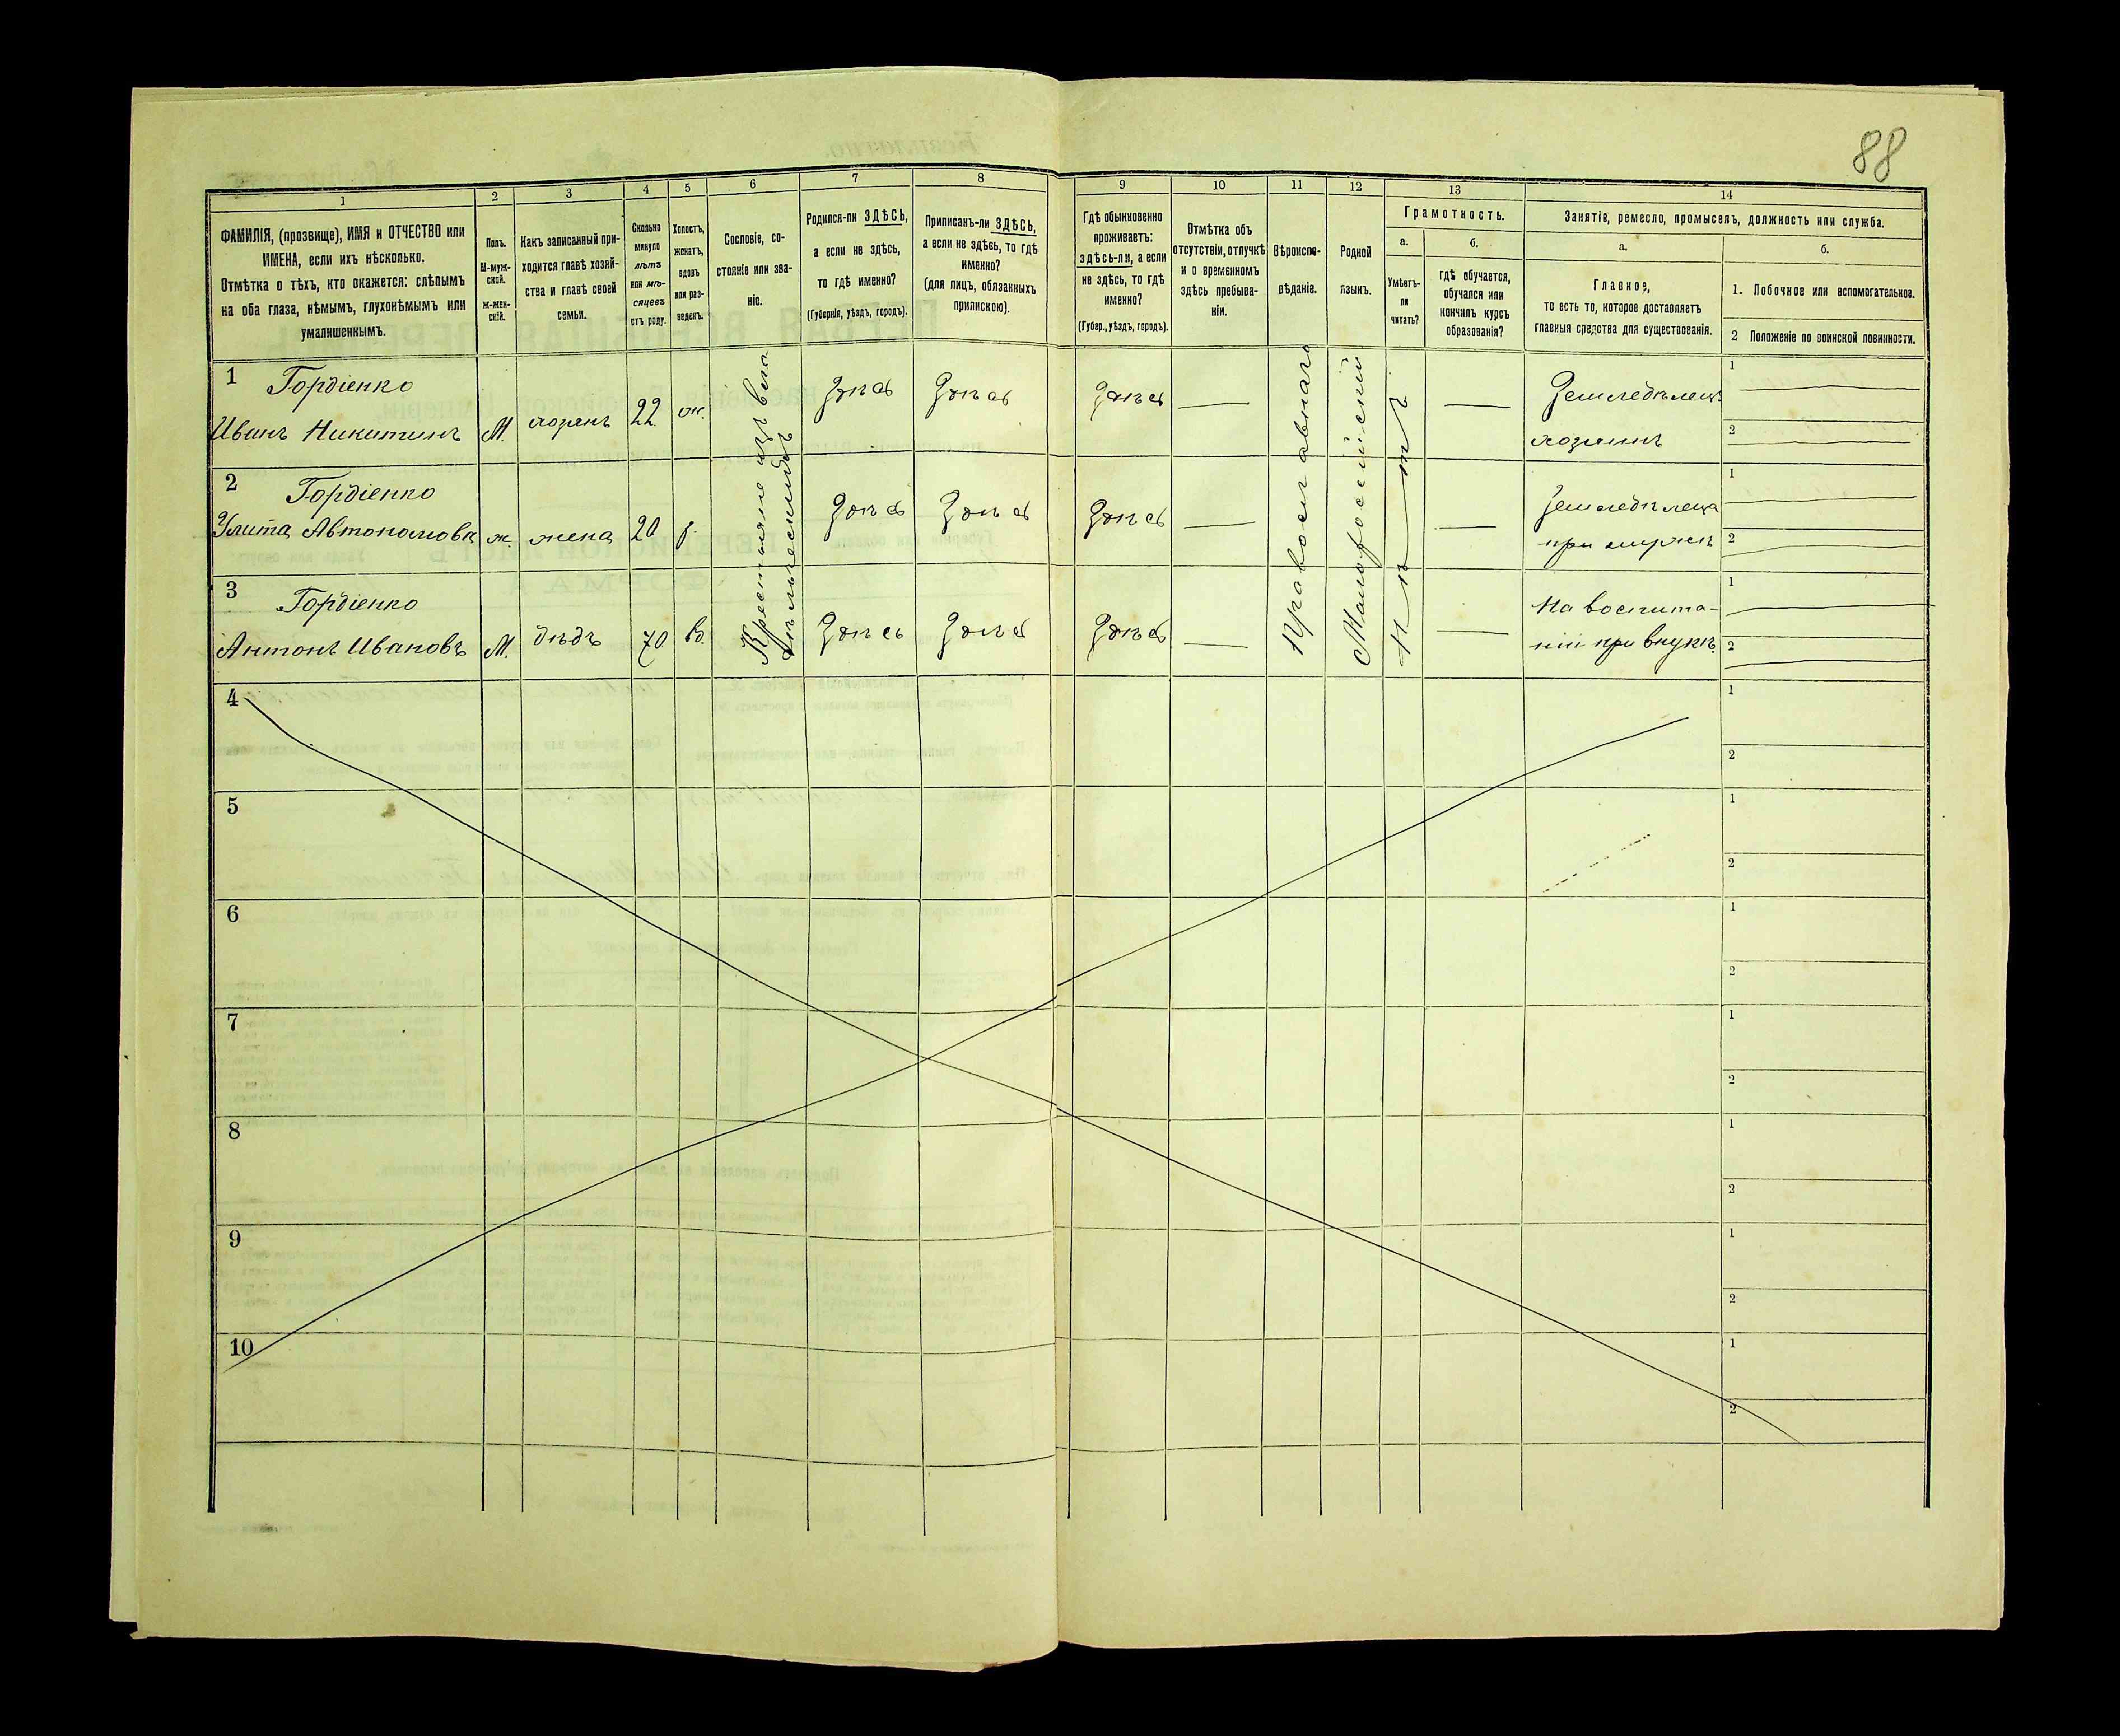 88
1 2 3 4 5 6 7 8 9 10 11 12 13 14
ФАМИЛІЯ, (прозвище), ИМЯ и ОТЧЕСТВО или
ИМЕНА, если ихъ нѣсколько.
Отмѣтка о тѣхъ, кто окажется: слѣпымъ
на оба глаза, нѣмымъ, глухонѣмымъ или
умалишеннымъ.
Полъ.
М-муж-
ской.
Ж-жен-
скій.
Какъ записанный при-
ходится главѣ хозяй-
ства и главѣ своей
семьи.
Сколько
минуло
лѣтъ
или мѣ-
сяцевъ
отъ роду.
Холостъ,
женатъ,
вдовъ
или раз-
веденъ.
Сословіе, со-
стояніе или зва-
ніе.
Родился-ли ЗДѢСЬ,
а если не здѣсь,
то гдѣ именно?
(Губернія, уѣздъ, городъ).
Приписанъ-ли ЗДѢСЬ,
а если не здѣсь, то гдѣ
именно?
(для лицъ, обязанныхъ
припискою).
Гдѣ обыкновенно
проживаетъ:
здѣсь-ли, а если
не здѣсь, то гдѣ
именно?
(Губер., уѣздъ, городъ).
Отмѣтка объ
отсутствіи, отлучкѣ
и о временномъ
здѣсь пребыва-
ніи.
Вѣроиспо-
вѣданіе.
Родной
языкъ.
Грамотность.
а.
Умѣетъ-
ли
читать?
б.
гдѣ обучается,
обучался или
кончилъ курсъ
образованія?
Занятія, ремесло, промыселъ, должность или служба.
а.
Главное,
то есть то, которое доставляетъ
главныя средства для существованія.
б.
1. Побочное или вспомогательное.
2 Положеніе по воинской повинности.
1 Гордіенко
Иванъ Никитинъ М. хозяинъ 22 ж. Здѣсь Здѣсь Здѣсь — — Земледѣлецъ
хозяинъ
1
2
2 Гордіенко
Улита Автономовна ж. жена 20 з. Здѣсь Здѣсь Здѣсь — — Земледѣлица
при мужѣ
1
2
3 Гордіенко
Антонъ Ивановъ М. дѣдъ 70 вд. Здѣсь Здѣсь Здѣсь — — На воспита-
ніи при внукѣ.
1
2
Крестьяне изъ
Православнаго
Малороссійскій
Нѣтъ
4
1
2
5
1
2
6
1
2
7
1
2
8
1
2
9
1
2
10
1
2